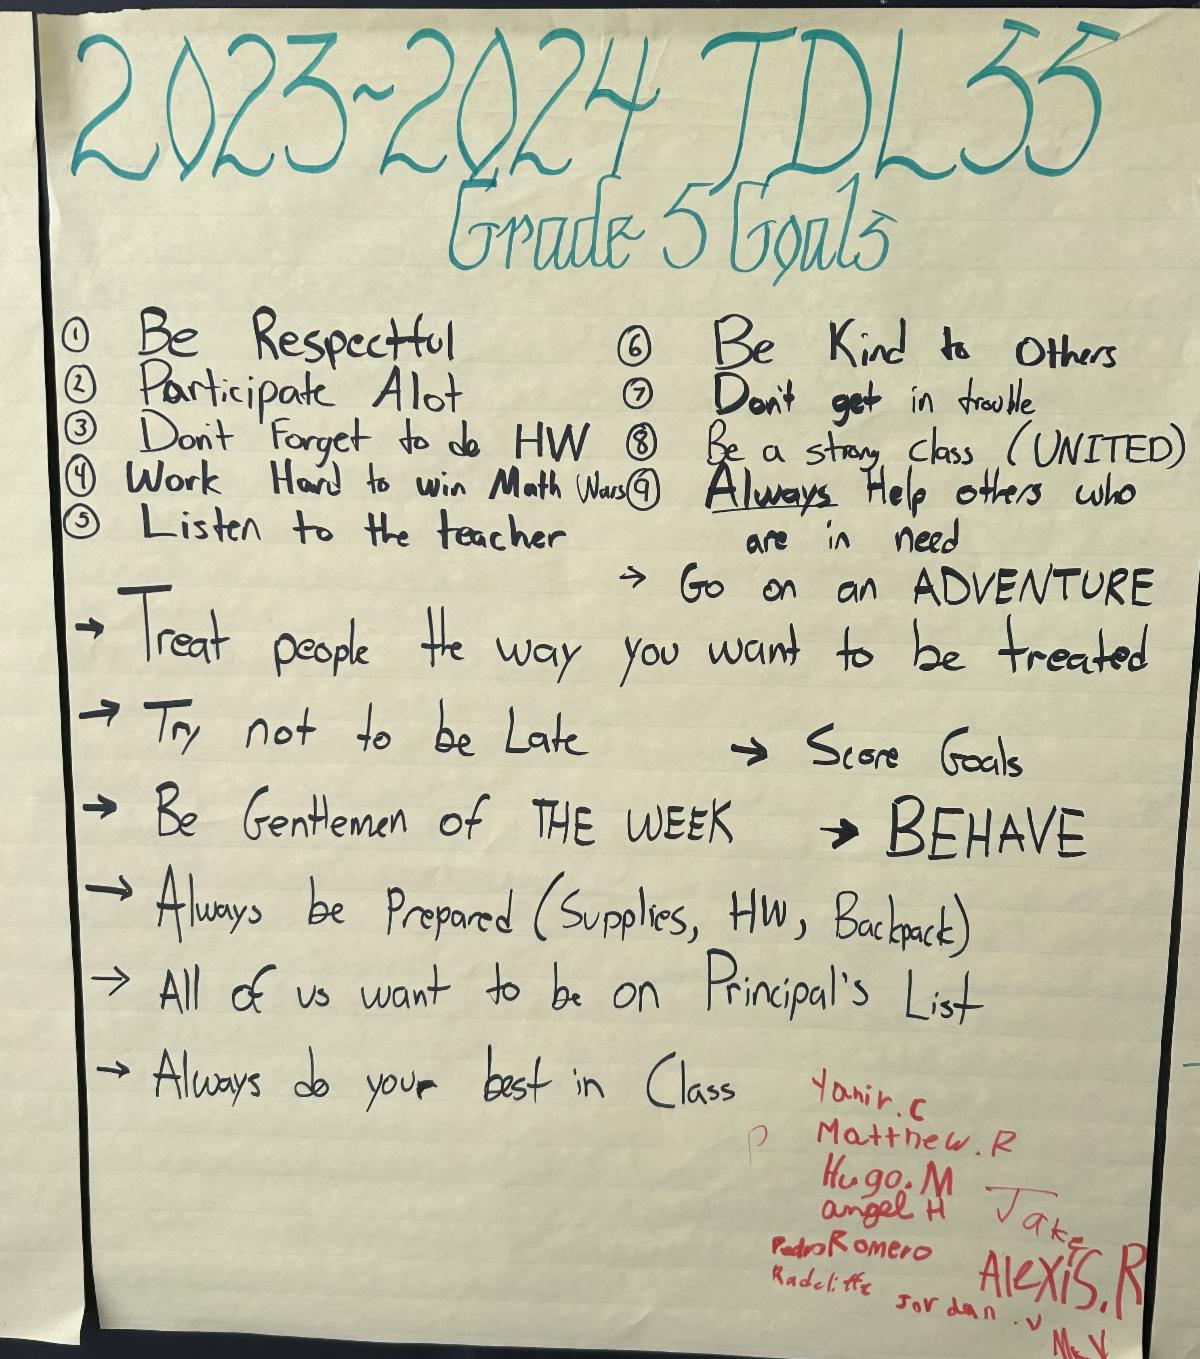 2023~2024 JDL 55
Grade 5 Goals
① Be Respectful
② Participate Alot
③ Don't Forget to do HW
④ Work Hard to win Math Wars
⑤ Listen to the teacher
⑥ Be Kind to Others
⑦ Don't get in trouble
⑧ Be a strong class (UNITED)
⑨ Always Help others who
are in need
→ Go on an ADVENTURE
→ Treat people the way you want to be treated
→ Try not to be Late
→ Score Goals
→ Be Gentlemen of THE WEEK
→ BEHAVE
→ Always be Prepared (Supplies, HW, Backpack)
→ All of us want to be on Principal's List
→ Always do your best in Class
Yanir. C
Matthew. R
Hugo. M
angel H
Jake
Pedro Romero
Alexis. R
Radcliffe
Jordan . V
Mr. V